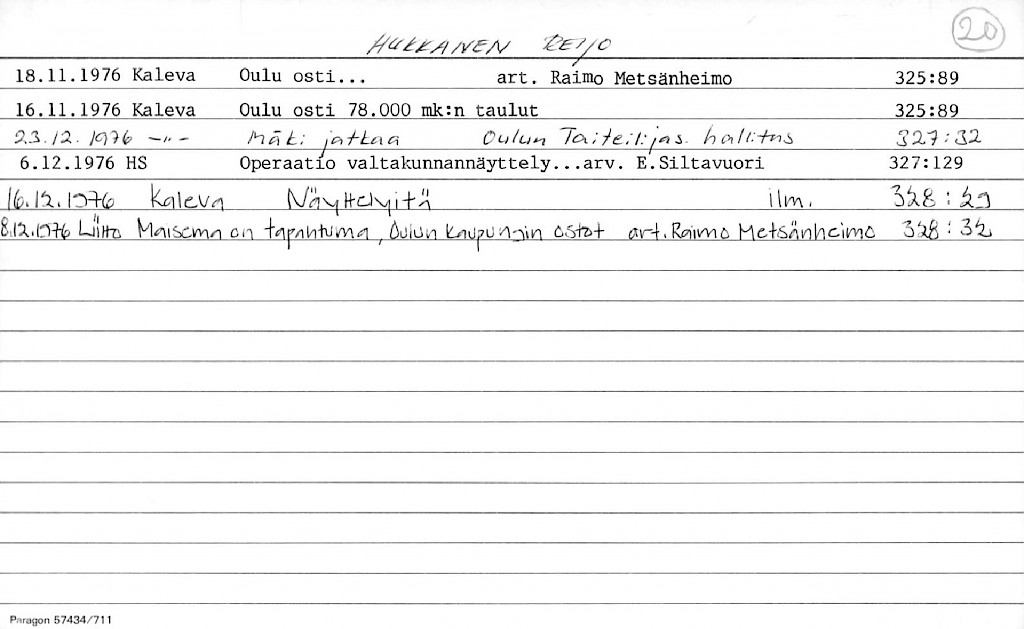 20
HUKKANEN REIJO
18.11.1976 Kaleva Oulu osti... art. Raimo Metsänheimo 325:89
16.11.1976 Kaleva Oulu osti 78.000 mk:n taulut 325:89
23.12.1976 -"- Mäki jatkaa Oulun Taiteilijas. hallitus 327:32
6.12.1976 HS Operaatio valtakunnannäyttely...arv. E.Siltavuori 327:129
16.12.1976 Kaleva Näyttelyitä ilm. 328:29
8.12.1976 Liitto Maisema on tapahtuma, Oulun kaupungin ostot art. Raimo Metsänheimo 328:32
Paragon 57434/711